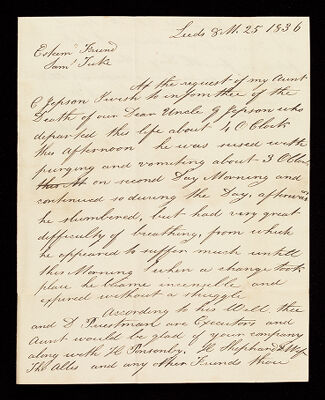 Leeds 8 M. 25 1836
Esteem'd Friend
Sam'l Tuke
At the request of my Aunt
C Jepson I wish to inform thee of the
Death of our Dear Uncle G Jepson who
departed this life about 4 O Clock
this afternoon he was seized with
purging and vomiting about 3 O Clock
on second Day Morning and
continued so during the Day, afterwards
he slumbered, but had very great
difficulty of breathing, from which
he appeared to suffer much untill
this Morning when a change took
place he became insensible and
expired without a struggle
According to his Will, thee
and D Priestman are Executors and
Aunt would be glad of your company
along with H Ponsonby, H Shephard & Wife
Tho and any other Friends thou